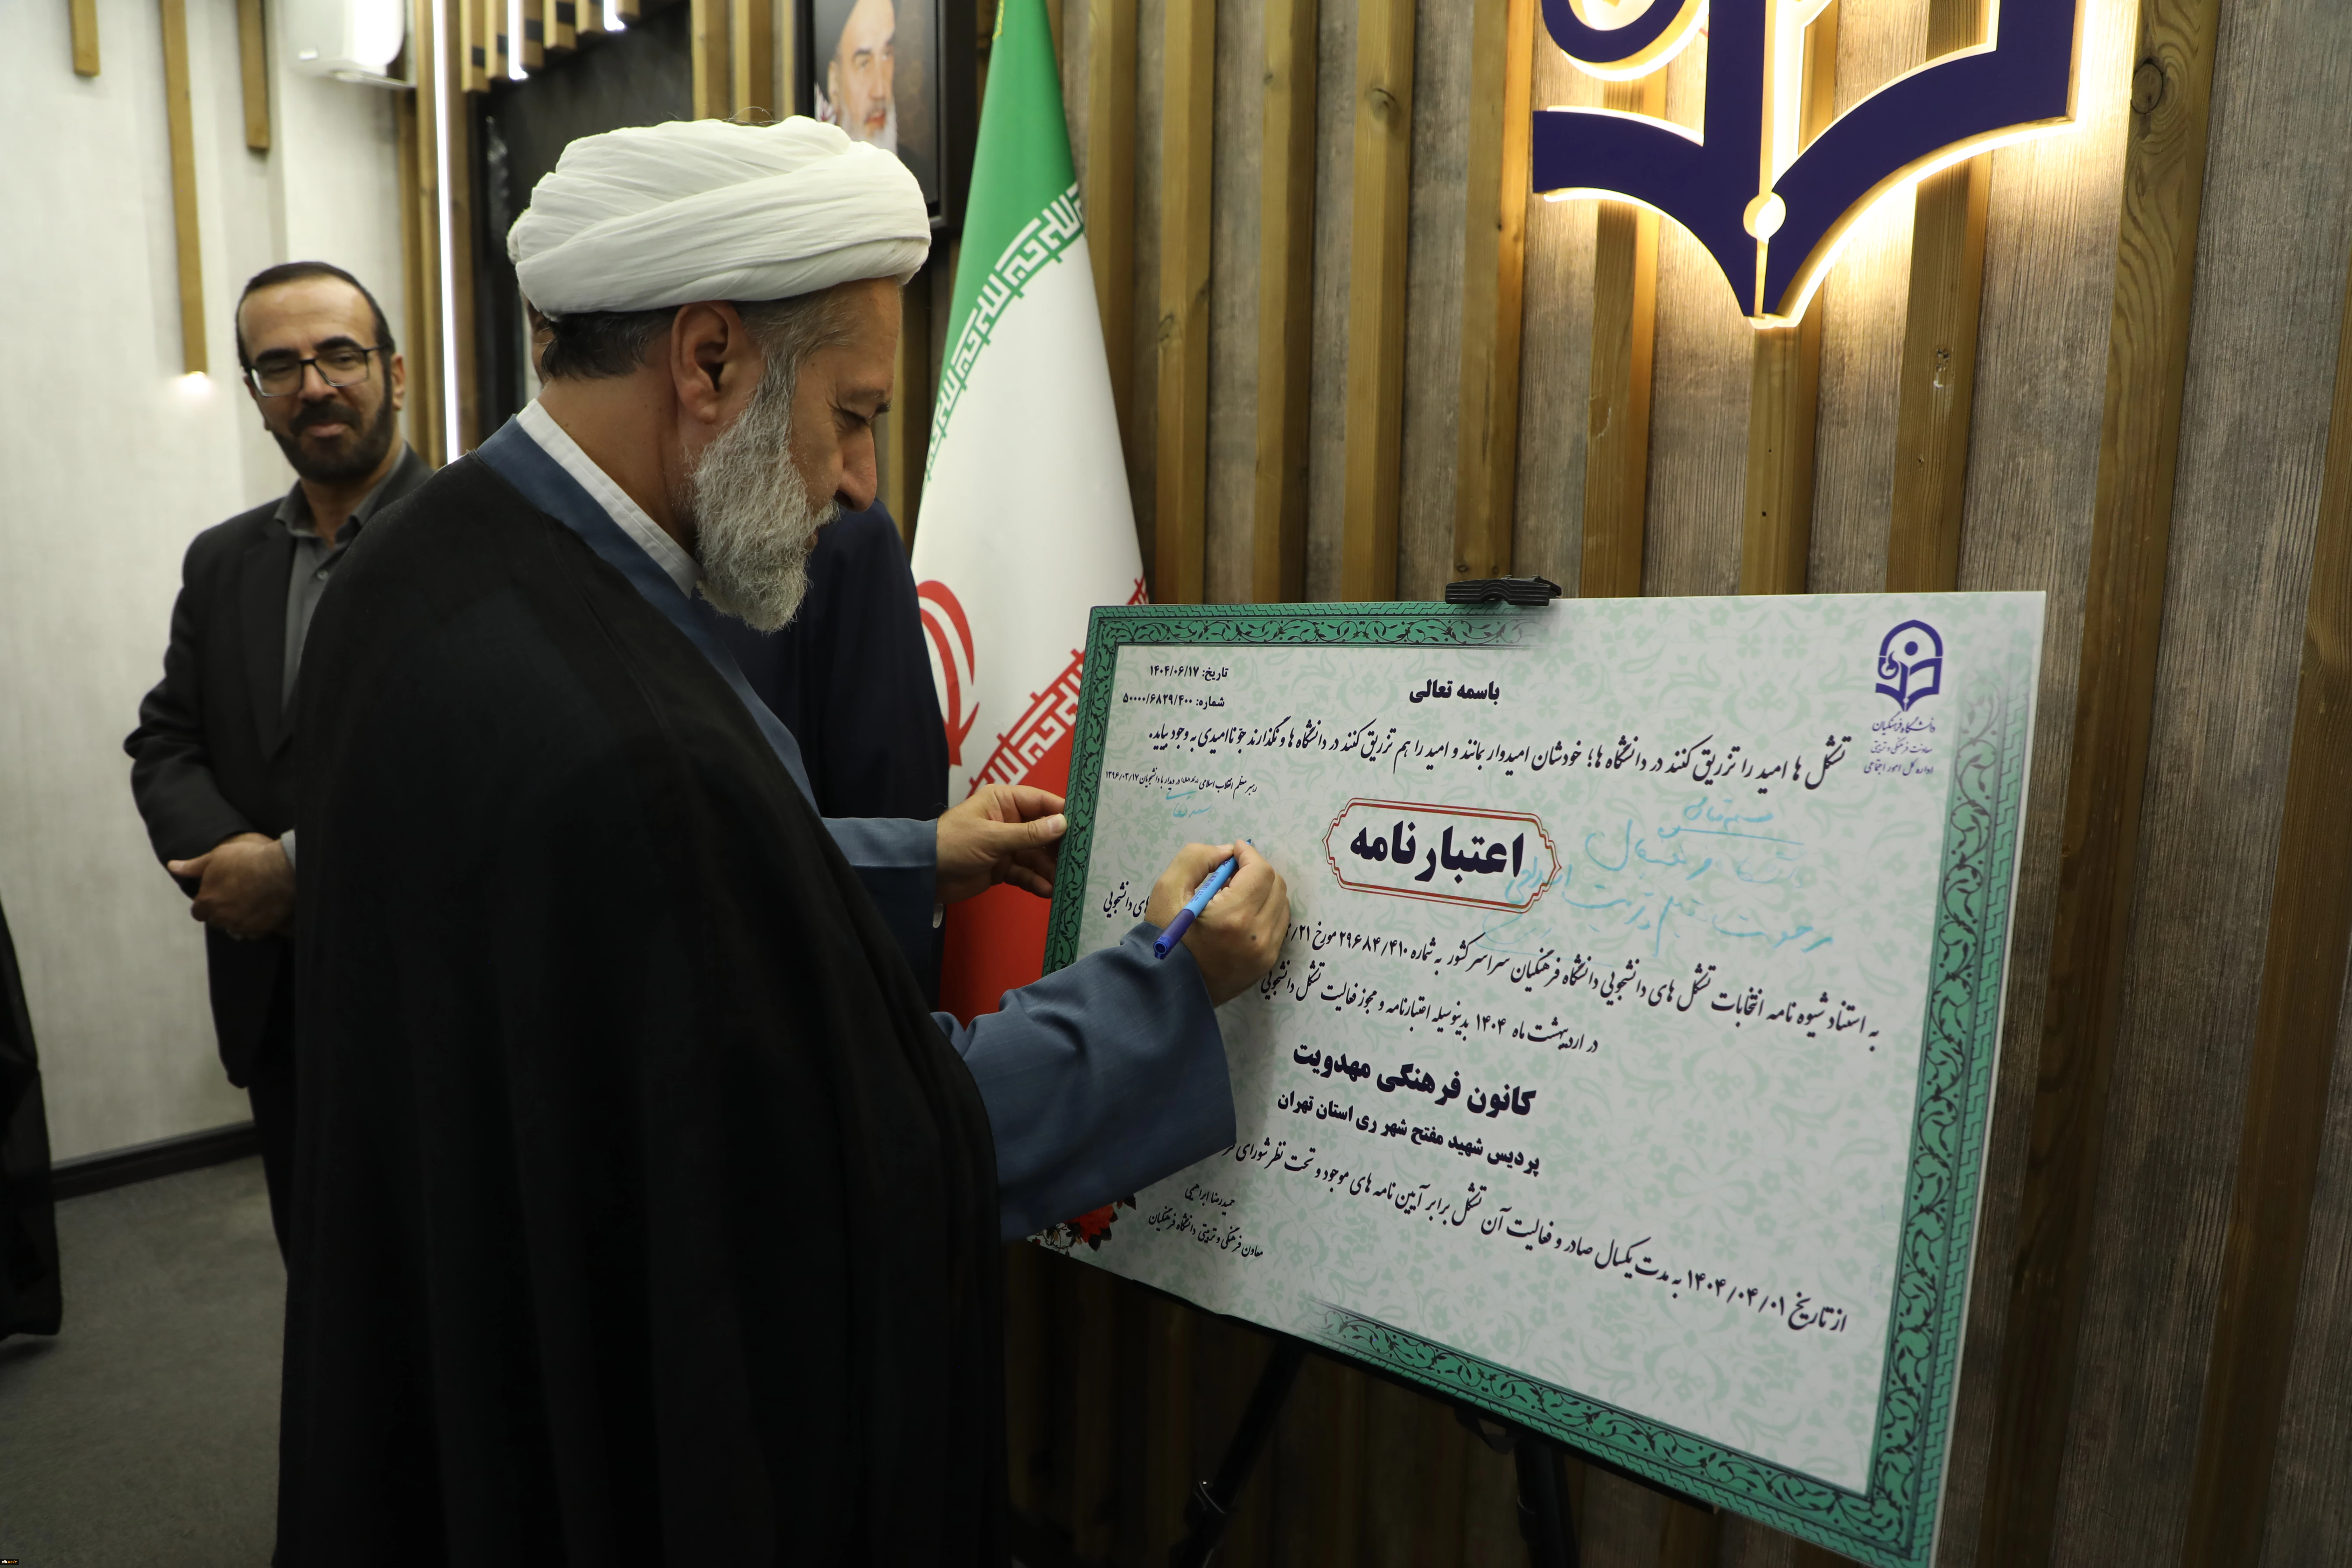 باسمه تعالی
تاریخ: ۱۴۰۴/۰۶/۱۷
شماره: ۵۰۰۰۰/۶۸۲۹/۴۰۰
دانشگاه فرهنگیان
معاونت فرهنگی و تربیتی
اداره کل امور اجتماعی
تشکل ها امید را تزریق کنند در دانشگاه ها؛ خودشان امیدوار بمانند و امید را هم تزریق کنند در دانشگاه ها و نگذارند جو ناامیدی به وجود بیاید.
رهبر معظم انقلاب اسلامی در دیدار با دانشجویان ۱۳۹۶/۰۳/۱۷
اعتبارنامه
به استناد شیوه نامه انتخابات تشکل های دانشجویی دانشگاه فرهنگیان سراسر کشور به شماره ۲۹۶۸۴/۴۱۰ مورخ ۲۱/ های دانشجویی
در اردیبهشت ماه ۱۴۰۴ بدینوسیله اعتبارنامه و مجوز فعالیت تشکل دانشجویی
کانون فرهنگی مهدویت
پردیس شهید مفتح شهر ری استان تهران
از تاریخ ۱۴۰۴/۰۴/۰۱ به مدت یکسال صادر و فعالیت آن تشکل برابر آیین نامه های موجود و تحت نظر شورای
حمیدرضا ابراهیمی
معاون فرهنگی و تربیتی دانشگاه فرهنگیان